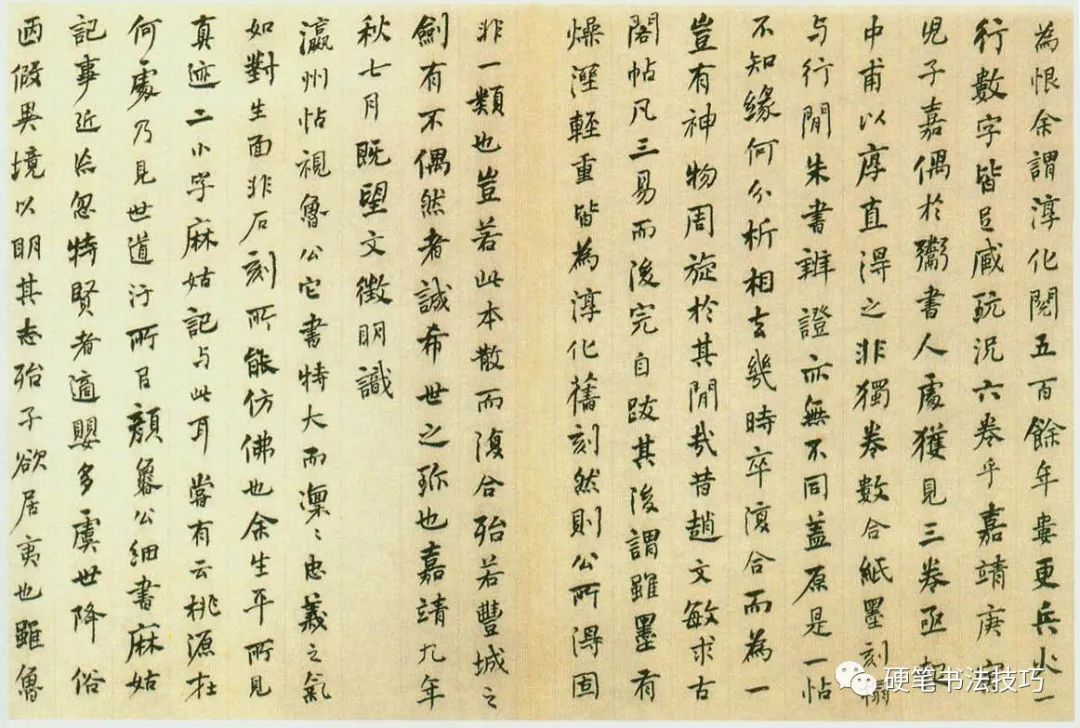 為恨余謂淳化閱五百餘年婁更兵火一
行數字皆㠯臧玩況六卷乎嘉靖庚
児子嘉偶於鬻書人處獲見三卷亟
中甫以厚直得之非獨卷數合紙墨刻搨
与行閒朱書辨證亦無不同蓋原是一帖
不知緣何分析相去幾時卒復合而為一
豈有神物周旋於其閒哉昔趙文敏求古
閣帖凡三易而後完自跋其後謂雖墨有
燥溼輕重皆為淳化舊刻然則公所得固
非一類也豈若此本散而復合殆若豐城之
劍有不偶然者誠希世之珎也嘉靖九年
秋七月既望文徵明識
瀛州帖視魯公它書特大而凜〻忠義之氣
如對生面非石刻所能仿佛也余生平所見
真迹二小字麻姑記与此耳嘗有云桃源在
何處乃見世道汙所㠯顏魯公細書麻姑
記事近忽特賢者適嬰多虞世降俗
假異境以明其志殆子欲居夷也雖魯
硬笔书法技巧